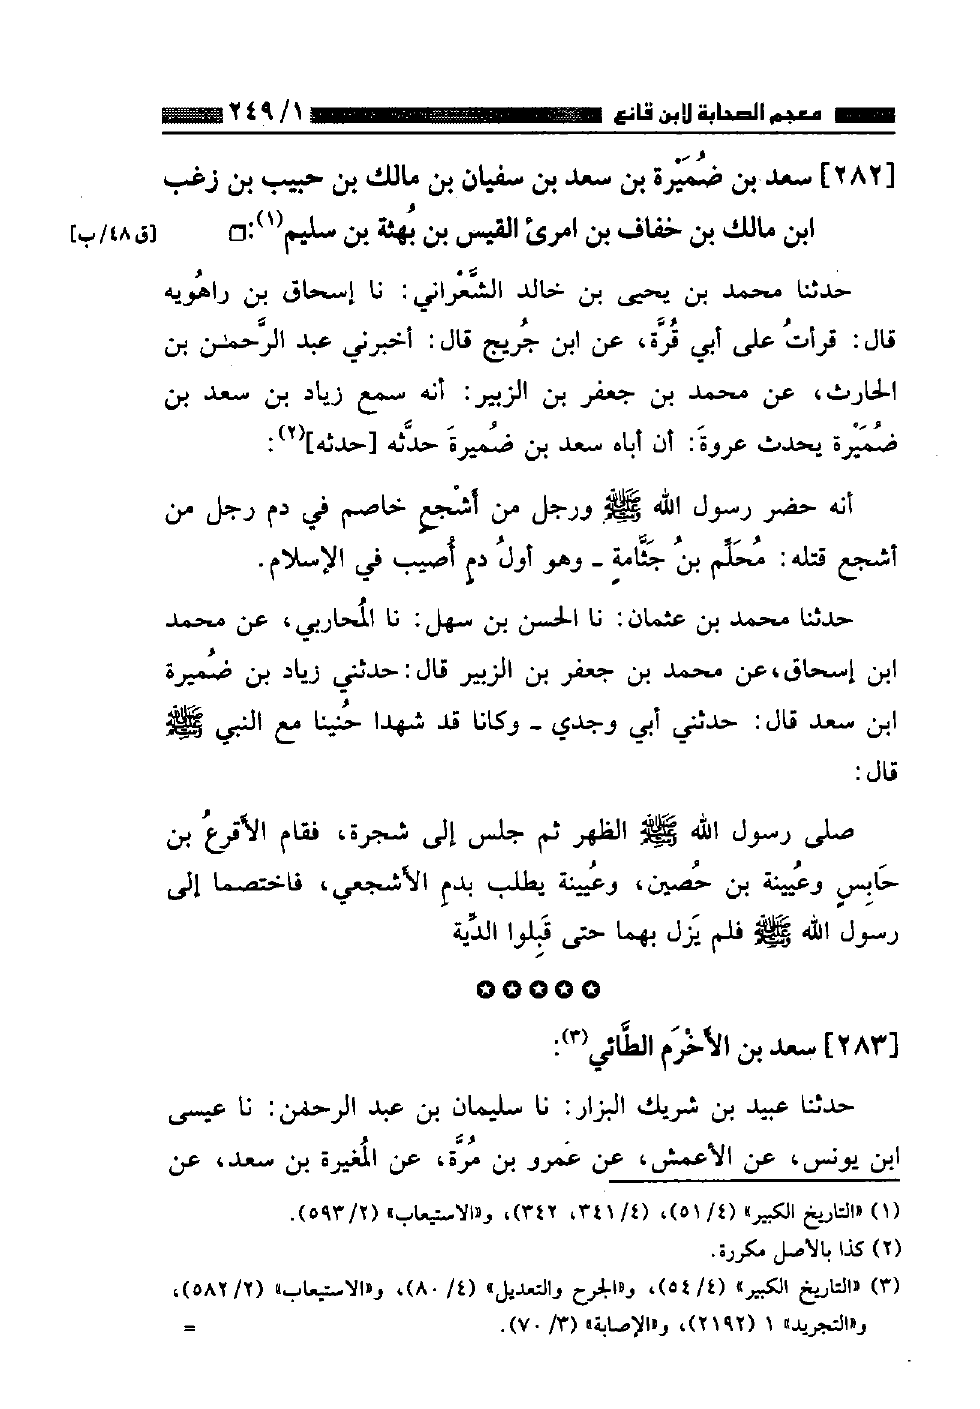 معجم الصحابة لابن قانع ٢٤٩/١
[٢٨٢] سعد بن ضُمَيْرة بن سعد بن سفيان بن مالك بن حبيب بن زغب
ابن مالك بن خفاف بن امرئ القيس بن بُهثة بن سليم(١): □ [ق ٤٨/ب]
حدثنا محمد بن يحيى بن خالد الشَّعْراني: نا إسحاق بن راهُويه
قال: قرأتُ على أبي قُرَّة، عن ابن جُريج قال: أخبرني عبد الرَّحمٰن بن
الحارث، عن محمد بن جعفر بن الزبير: أنه سمع زياد بن سعد بن
ضُمَيْرة يحدث عروةَ: أن أباه سعد بن ضُميرةَ حدَّثه [حدثه](٢):
أنه حضر رسول الله ﷺ ورجل من أشْجعٍ خاصم في دم رجل من
أشجع قتله: مُحَلِّم بنُ جَثَّامةٍ - وهو أولُ دمٍ أُصيب في الإسلام.
حدثنا محمد بن عثمان: نا الحسن بن سهل: نا المُحاربي، عن محمد
ابن إسحاق، عن محمد بن جعفر بن الزبير قال: حدثني زياد بن ضُميرة
ابن سعد قال: حدثني أبي وجدي - وكانا قد شهدا حُنينا مع النبي ﷺ
قال:
صلى رسول الله ﷺ الظهر ثم جلس إلى شجرة، فقام الأقرعُ بن
حَابِسٍ وعُيينة بن حُصين، وعُيينة يطلب بدمِ الأشجعي، فاختصما إلى
رسول الله ﷺ فلم يَزل بهما حتى قَبِلوا الدِّية
[٢٨٣] سعد بن الأخْرَم الطَّائي(٣):
حدثنا عبيد بن شريك البزار: نا سليمان بن عبد الرحمٰن: نا عيسى
ابن يونس، عن الأعمش، عن عَمرو بن مُرَّة، عن المُغيرة بن سعد، عن
(١) «التاريخ الكبير» (٥١/٤)، (٣٤١/٤، ٣٤٢)، و«الاستيعاب» (٥٩٣/٢).
(٢) كذا بالأصل مكررة.
(٣) «التاريخ الكبير» (٥٤/٤)، و«الجرح والتعديل» (٨٠/٤)، و«الاستيعاب» (٥٨٢/٢)،
و«التجريد» ١ (٢١٩٢)، و«الإصابة» (٧٠/٣). =